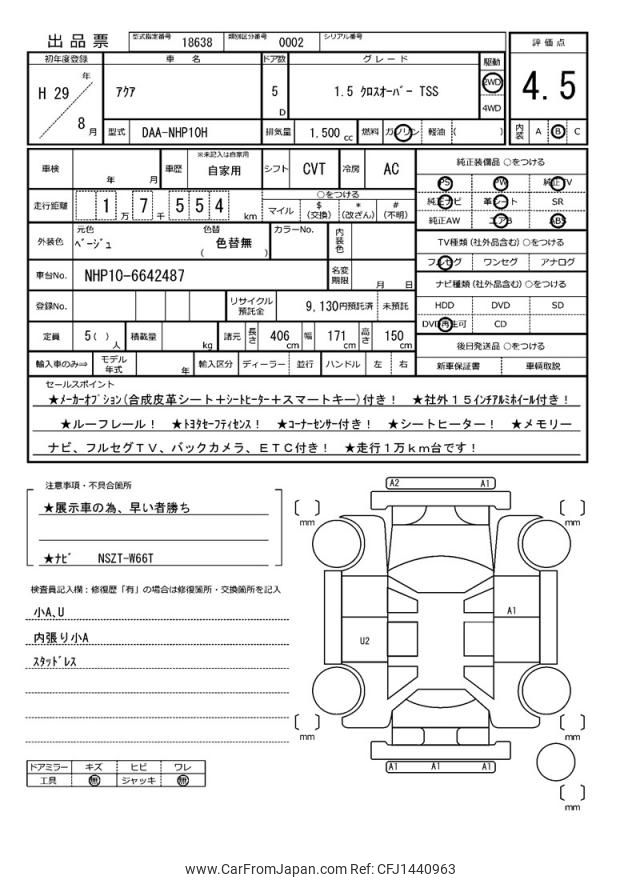 出品票
型式指定番号 18638 類別区分番号 0002 シリアル番号
評価点
4.5
内装 A B C
初年度登録 車名 ドア数 グレード 駆動
H 29 年 8 月
アクア
5 D
1.5 クロスオーバー TSS
2WD
4WD
型式 DAA-NHP10H 排気量 1,500 cc 燃料 ガソリン 軽油 ( )
車検 年 月 車歴 ※未記入は自家用 自家用 シフト CVT 冷房 AC
走行距離 1 万 7 千 5 5 4 km
○をつける
マイル $(交換) *(改ざん) #(不明)
外装色 元色 ベージュ 色替 ( 色替無 ) カラーNo. 内装色
車台No. NHP10-6642487 名変期限 月 日
登録No. リサイクル預託金 9,130円預託済 未預託
定員 5( )人 積載量 kg 諸元 長さ 406 cm 幅 171 cm 高さ 150 cm
輸入車のみ⇒ モデル年式 年 輸入区分 ディーラー 並行 ハンドル 左 右
純正装備品 ○をつける
PS PW 純正TV
純正ナビ 革シート SR
純正AW エアB ABS
TV種類(社外品含む)○をつける
フルセグ ワンセグ アナログ
ナビ種類(社外品含む)○をつける
HDD DVD SD
DVD再生可 CD
後日発送品 ○をつける
新車保証書 車輌取説
セールスポイント
★メーカーオプション(合成皮革シート+シートヒーター+スマートキー)付き! ★社外15インチアルミホイール付き!
★ルーフレール! ★トヨタセーフティセンス! ★コーナーセンサー付き! ★シートヒーター! ★メモリー
ナビ、フルセグTV、バックカメラ、ETC付き! ★走行1万km台です!
注意事項・不具合箇所
★展示車の為、早い者勝ち
★ナビ NSZT-W66T
検査員記入欄:修復歴「有」の場合は修復箇所・交換箇所を記入
小A、U
内張り小A
スタッドレス
ドアミラー キズ ヒビ ワレ
工具 無 ジャッキ 無
A2 A1
mm
mm
A1
U2
mm
mm
A1 A1 A1
mm
www.CarFromJapan.com Ref: CFJ1440963